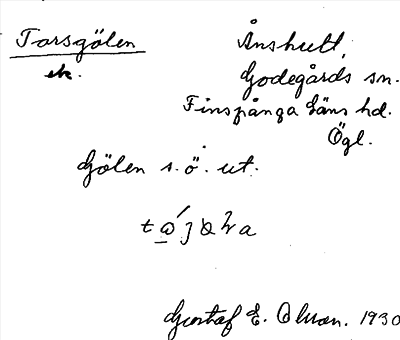 Torsgölen
ek.
Ånshult,
Godegårds sn.
Finspånga läns hd.
Ögl.
Gölen s. ö. ut.
Gustaf E. Olson. 1930